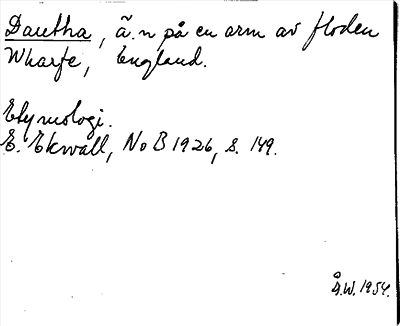 Dautha, ä.n på en arm av floden
Wharfe, England.
Etymologi.
E. Ekwall, NoB 1926, s. 149.
Å.W. 1954.